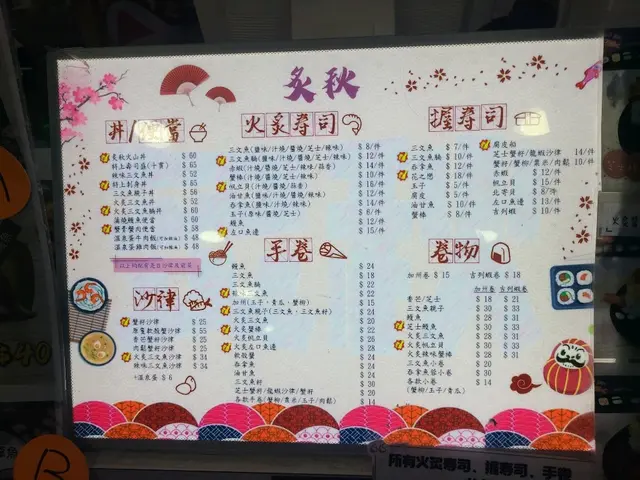 炙秋
丼/便當
炙秋火山丼 $ 60
特上壽司盛(十貫) $ 65
辣味三文魚丼 $ 52
特上刺身丼 $ 65
三文魚親子丼 $ 56
火炙三文魚丼 $ 52
火炙三文魚腩丼 $ 60
油燒鰻魚便當 $ 60
蟹膏蟹肉便當 $ 58
溫泉蛋牛肉飯 $ 48
溫泉蛋雞肉飯 $ 48
沙律
蟹籽沙律 $ 25
吞拿魚沙律 $ 55
香芒蟹籽沙律 $ 25
肉鬆蟹籽沙律 $ 25
火炙三文魚沙律 $ 34
辣味三文魚沙律 $ 34
+溫泉蛋 $ 6
火炙壽司
三文魚(鹽味/汁燒/醬燒/芝士/辣味) $ 8/件
三文魚腩(鹽味/汁燒/醬燒/芝士/辣味) $ 12/件
赤蝦(汁燒/醬燒/芝士/辣味/蒜香) $ 14/件
蟹棒(汁燒/醬燒/芝士/辣味) $ 10/件
帆立貝(汁燒/醬燒/蒜香) $ 16/件
油甘魚(鹽味/汁燒/醬燒/辣味) $ 12/件
吞拿魚(鹽味/汁燒/醬燒/辣味) $ 14/件
玉子(原味/醬燒/芝士) $ 6/件
鰻魚 $ 12/件
左口魚邊 $ 15/件
握壽司
三文魚 $ 7/件
三文魚腩 $ 10/件
吞拿魚 $ 12/件
花之戀 $ 18/件
玉子 $ 5/件
腐皮 $ 5/件
油甘魚 $ 10/件
蟹棒 $ 8/件
腐皮船
芝士蟹籽/龍蝦沙律 14/件
蟹籽/蟹柳/粟米/肉鬆 10/件
赤蝦 $ 12/件
帆立貝 $ 15/件
北寄貝 $ 8/件
左口魚邊 $ 13/件
吉列蝦 $ 10/件
手卷
鰻魚 $ 24
三文魚 $ 18
三文魚腩 $ 22
三文魚 $ 22
加州(玉子,青瓜,蟹柳) $ 15
三文魚親子(三文魚,三文魚籽) $ 24
火炙三文魚 $ 20
火炙三文魚腩 $ 24
火炙蟹棒 $ 22
火炙帆立貝 $ 26
火炙左口魚邊 $ 28
軟殼蟹 $ 24
吞拿魚 $ 24
油甘魚 $ 24
三文魚籽 $ 30
芝士蟹籽/龍蝦沙律/蟹籽 $ 20
各款手卷(蟹柳/粟米/玉子/肉鬆) $ 14
卷物
加州卷 $ 15
吉列蝦卷 $ 18
加州卷 吉列蝦卷
香芒/芝士 $ 18 $ 21
三文魚親子 $ 30 $ 33
鰻魚 $ 28 $ 31
芝士鰻魚 $ 30 $ 33
火炙三文魚 $ 28 $ 31
火炙帆立貝 $ 30 $ 33
火炙辣味蟹棒 $ 28 $ 31
三文魚小卷 $ 20
吞拿魚蓉小卷 $ 20
各款小卷 $ 14
(蟹柳/玉子/青瓜)
所有火炙壽司、握壽司、手卷
B